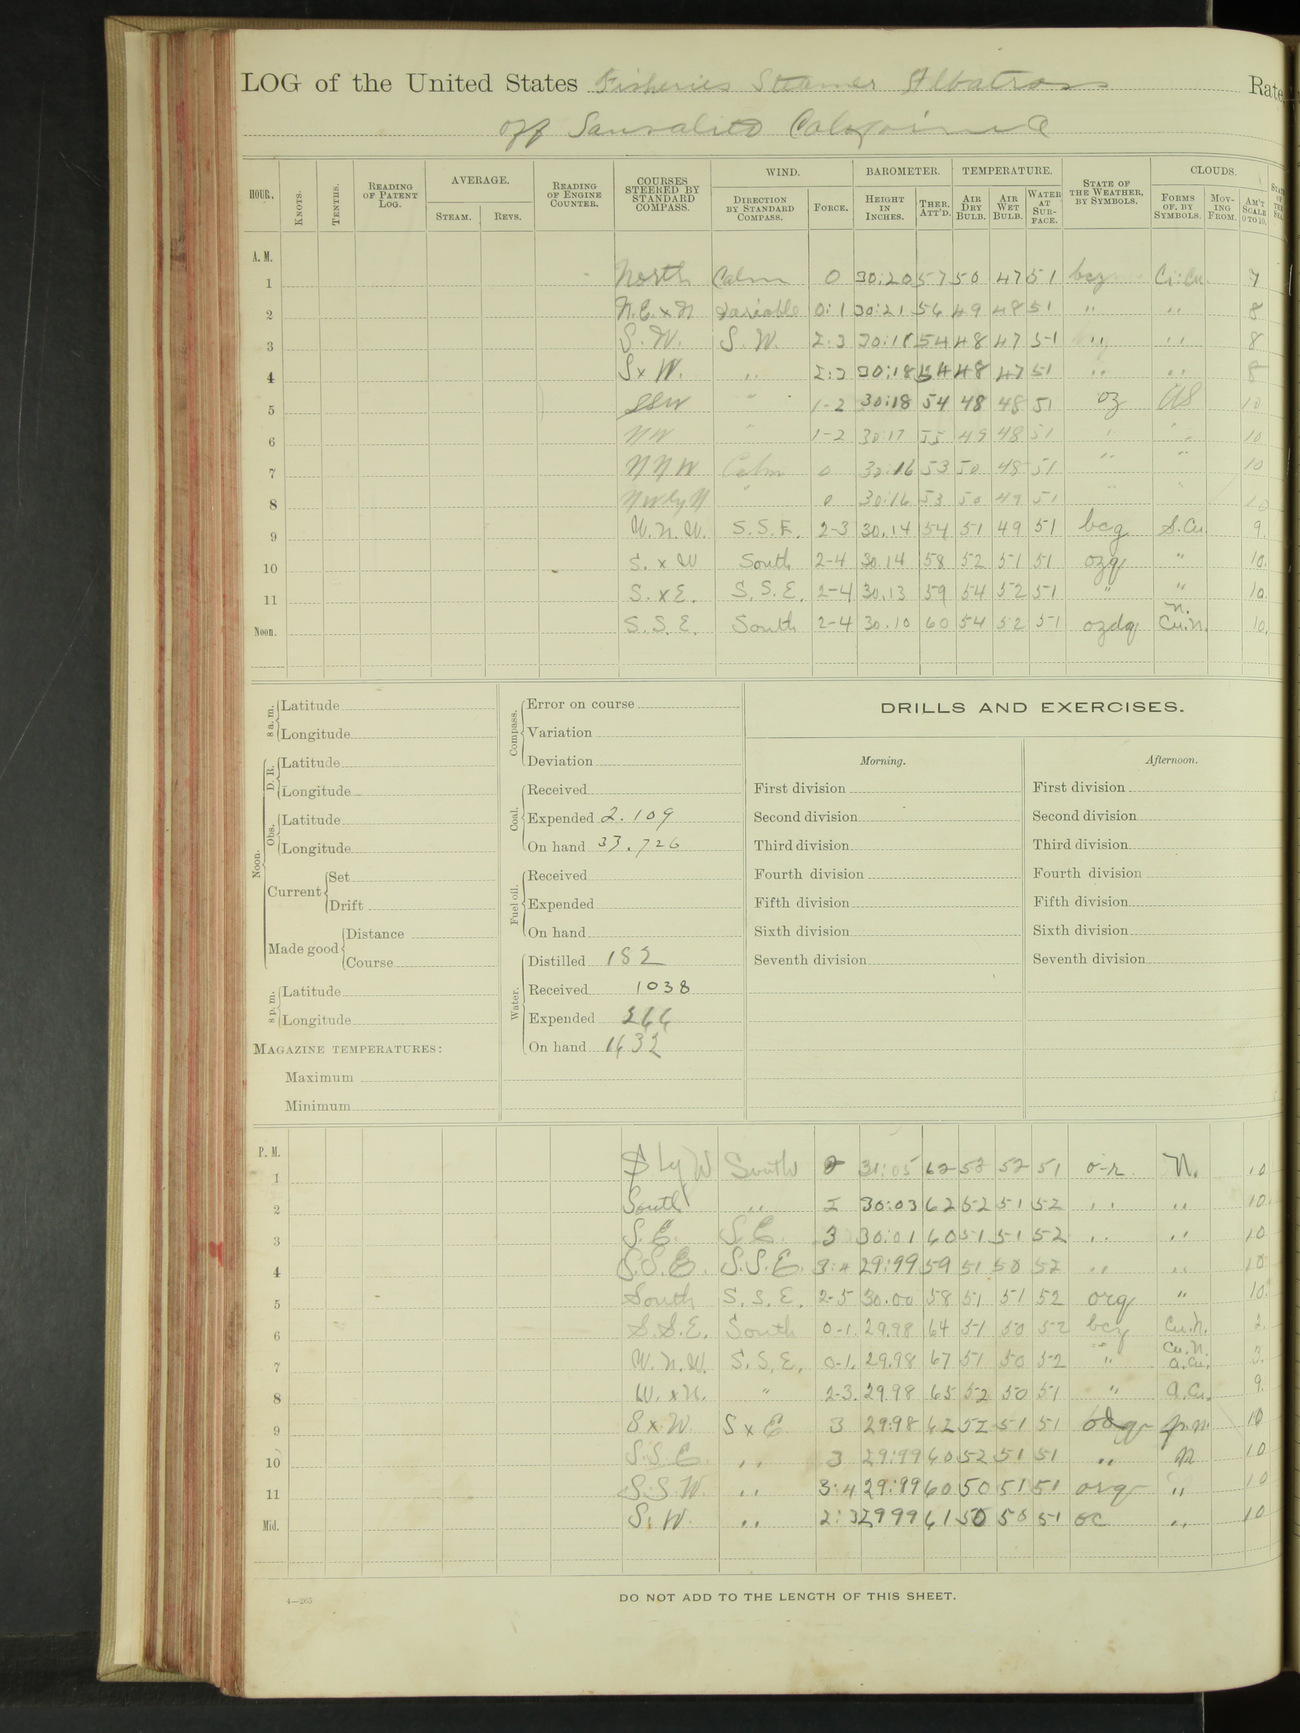 LOG of the United States Fisheries Steamer Albatross Rate
off Sausalito California
HOUR. KNOTS. TENTHS. READING OF PATENT LOG. AVERAGE. STEAM. REVS. READING OF ENGINE COUNTER. COURSES STEERED BY STANDARD COMPASS. WIND. DIRECTION BY STANDARD COMPASS. FORCE. BAROMETER. HEIGHT IN INCHES. THER. ATT'D. TEMPERATURE. AIR DRY BULB. AIR WET BULB. WATER AT SURFACE. STATE OF THE WEATHER, BY SYMBOLS. CLOUDS. FORMS OF, BY SYMBOLS. MOVING FROM. AM'T SCALE 0 TO 10.
A. M.
1 North Calm 0 30:20 57 50 47 51 bcz Ci:Cu 7
2 N.E.xN Variable 0:1 30:21 56 49 48 51 " " 8
3 S.W. S.W. 2:3 30:18 54 48 47 51 " " 8
4 SxW. " 2:3 30:18 54 48 47 51 " " 8
5 SSW " 1-2 30:18 54 48 48 51 oz 10
6 NW " 1-2 30:17 55 49 48 51 " " 10
7 NNW Calm 0 30:16 53 50 48 51 " " 10
8 NWlyN " 0 30:16 53 50 49 51 " " 10
9 W.N.W. S.S.E. 2-3 30.14 54 51 49 51 bcq S.Cu. 9.
10 S.xW South 2-4 30.14 58 52 51 51 ozq " 10.
11 S.xE. S.S.E. 2-4 30.13 59 54 52 51 " " 10.
Noon. S.S.E. South 2-4 30.10 60 54 52 51 ozdq N. Cu.N. 10.
8 a. m. Latitude
Longitude
Noon. D. R. Latitude
Longitude
Obs. Latitude
Longitude
Current Set
Drift
Made good Distance
Course
8 p. m. Latitude
Longitude
MAGAZINE TEMPERATURES:
Maximum
Minimum
Compass. Error on course
Variation
Deviation
Coal. Received
Expended 2.109
On hand 33.726
Fuel oil. Received
Expended
On hand
Water. Distilled 182
Received 1038
Expended 266
On hand 1632
DRILLS AND EXERCISES.
Morning.
First division
Second division
Third division
Fourth division
Fifth division
Sixth division
Seventh division
Afternoon.
First division
Second division
Third division
Fourth division
Fifth division
Sixth division
Seventh division
P. M.
1 SlyW South 2 31:05 62 52 52 51 o-r N. 10
2 South " 2 30:03 62 52 51 52 " " 10.
3 S.E. S.E. 3 30:01 60 51 51 52 " " 10
4 S.S.E. S.S.E. 3:4 29:99 59 51 50 52 " " 10
5 South S.S.E. 2-5 30.00 58 51 51 52 orq " 10.
6 S.S.E. South 0-1. 29.98 64 51 50 52 bcq Cu.N. 2.
7 W.N.W. S.S.E. 0-1. 29.98 67 51 50 52 " Cu.N. a.Cu. 3.
8 W.xN. " 2-3. 29.98 65 52 50 51 " a.Cu. 9.
9 SxW. SxE 3 29:98 62 52 51 51 10
10 S.S.E. " 3 29:99 60 52 51 51 " N 10
11 S.S.W. " 3:4 29:99 60 50 51 51 orq " 10
Mid. S.W. " 2:3 29 99 61 50 50 51 oc " 10
4—265
DO NOT ADD TO THE LENGTH OF THIS SHEET.